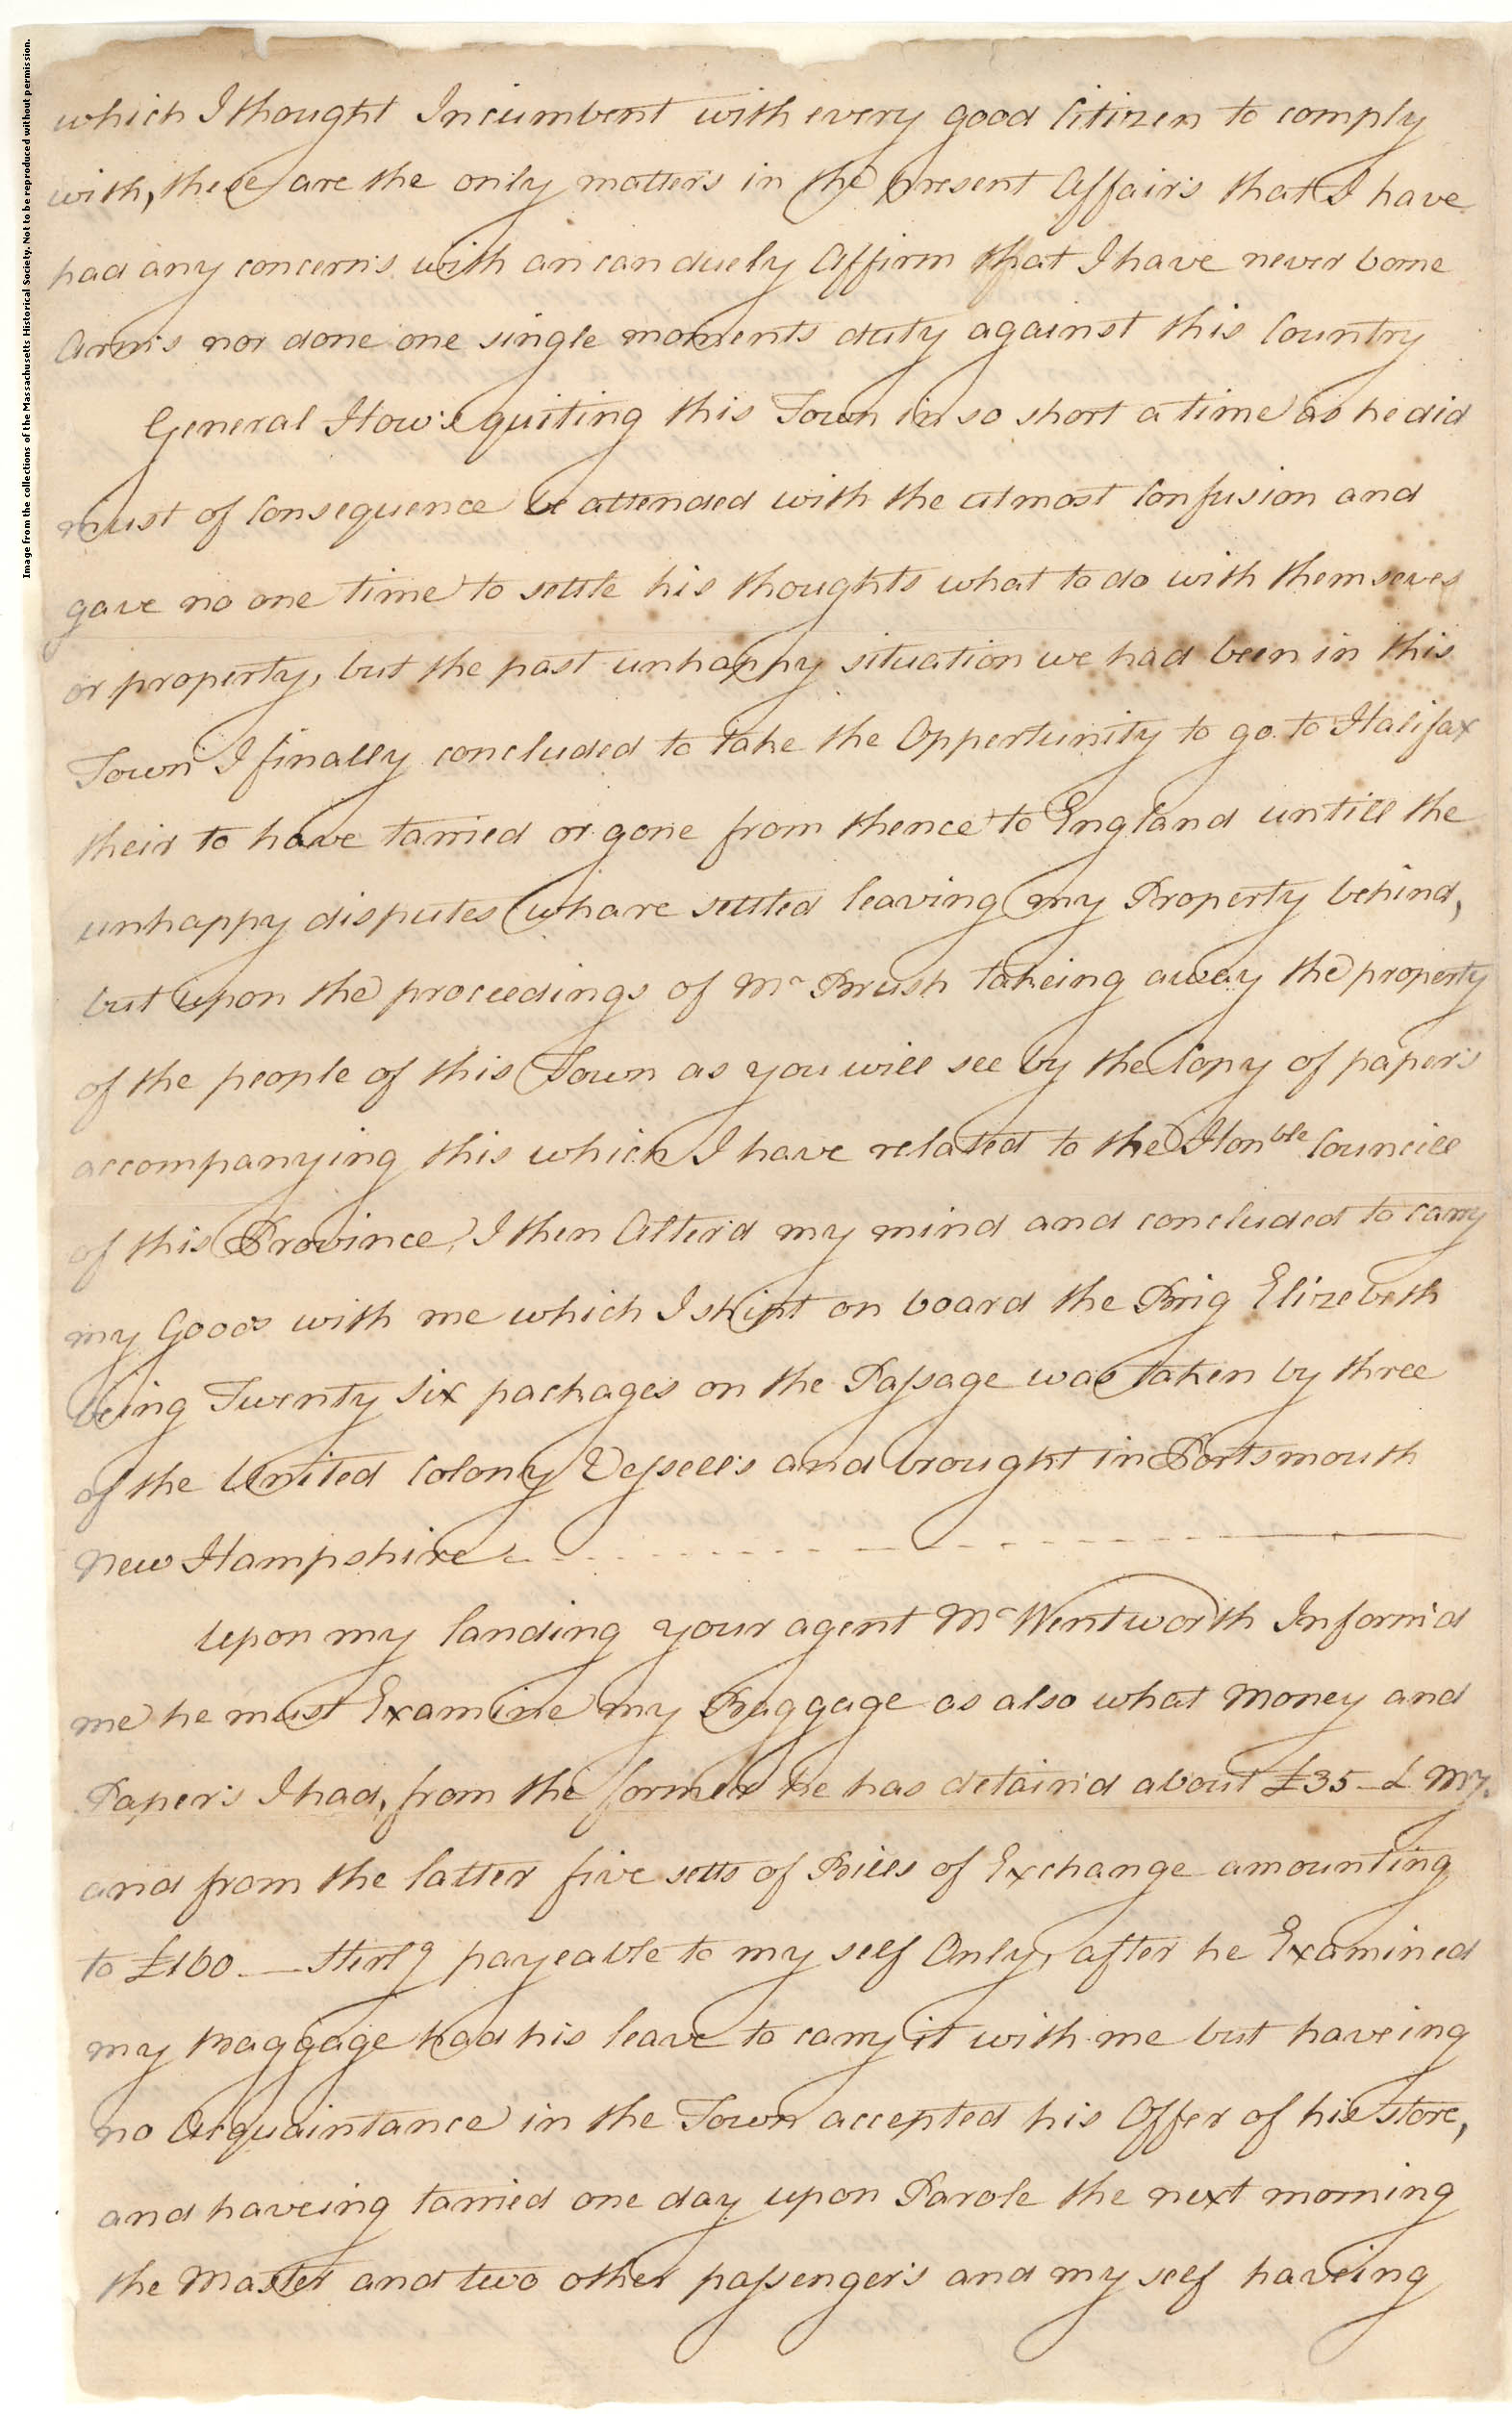 Image from the collections of the Massachusetts Historical Society. Not to be reproduced without permission.
which I thought Incumbent with every good Citizen to comply
with, these are the only matter's in the present Affair's that I have
had any concern's with an can duely Affirm that I have never borne
Arm's nor done one single moments duty against this Country
General How's quiting this Town in so short a time as he did
must of Consequence be attended with the utmost Confusion and
gave no one time to settle his thoughts what to do with themseves
or property, but the past unhappy situation we had been in this
Town I finally concluded to take the Oppertunity to go to Halifax
their to have tarried or gone from thence to England untill the
unhappy disputes whare settled leaving my Property behind,
but upon the proceedings of Mr Brush takeing away the property
of the people of this Town as you will see by the Copy of paper's
accompanying this which I have related to the Honble Councill
of this Province, I then Alter'd my mind and concluded to carry
my Goods with me which I shipt on board the Brig Elizebeth
being Twenty six packages on the Passage was taken by three
of the United Colony Vessell's and brought in Portsmouth
New Hampshire
Upon my landing your agent Mr Wentworth Inform'd
me he must Examine my Baggage as also what Money and
Paper's I had, from the former he has detain'd about £35 L My.
and from the latter five setts of Bills of Exchange amounting
to £160 Sterlg payeable to my self Only, after he Examined
my Baggage had his leave to carry it with me but haveing
no Acquaintance in the Town accepted his Offer of his store,
and haveing tarried one day upon Parole the next morning
the Master and two other passenger's and my self haveing